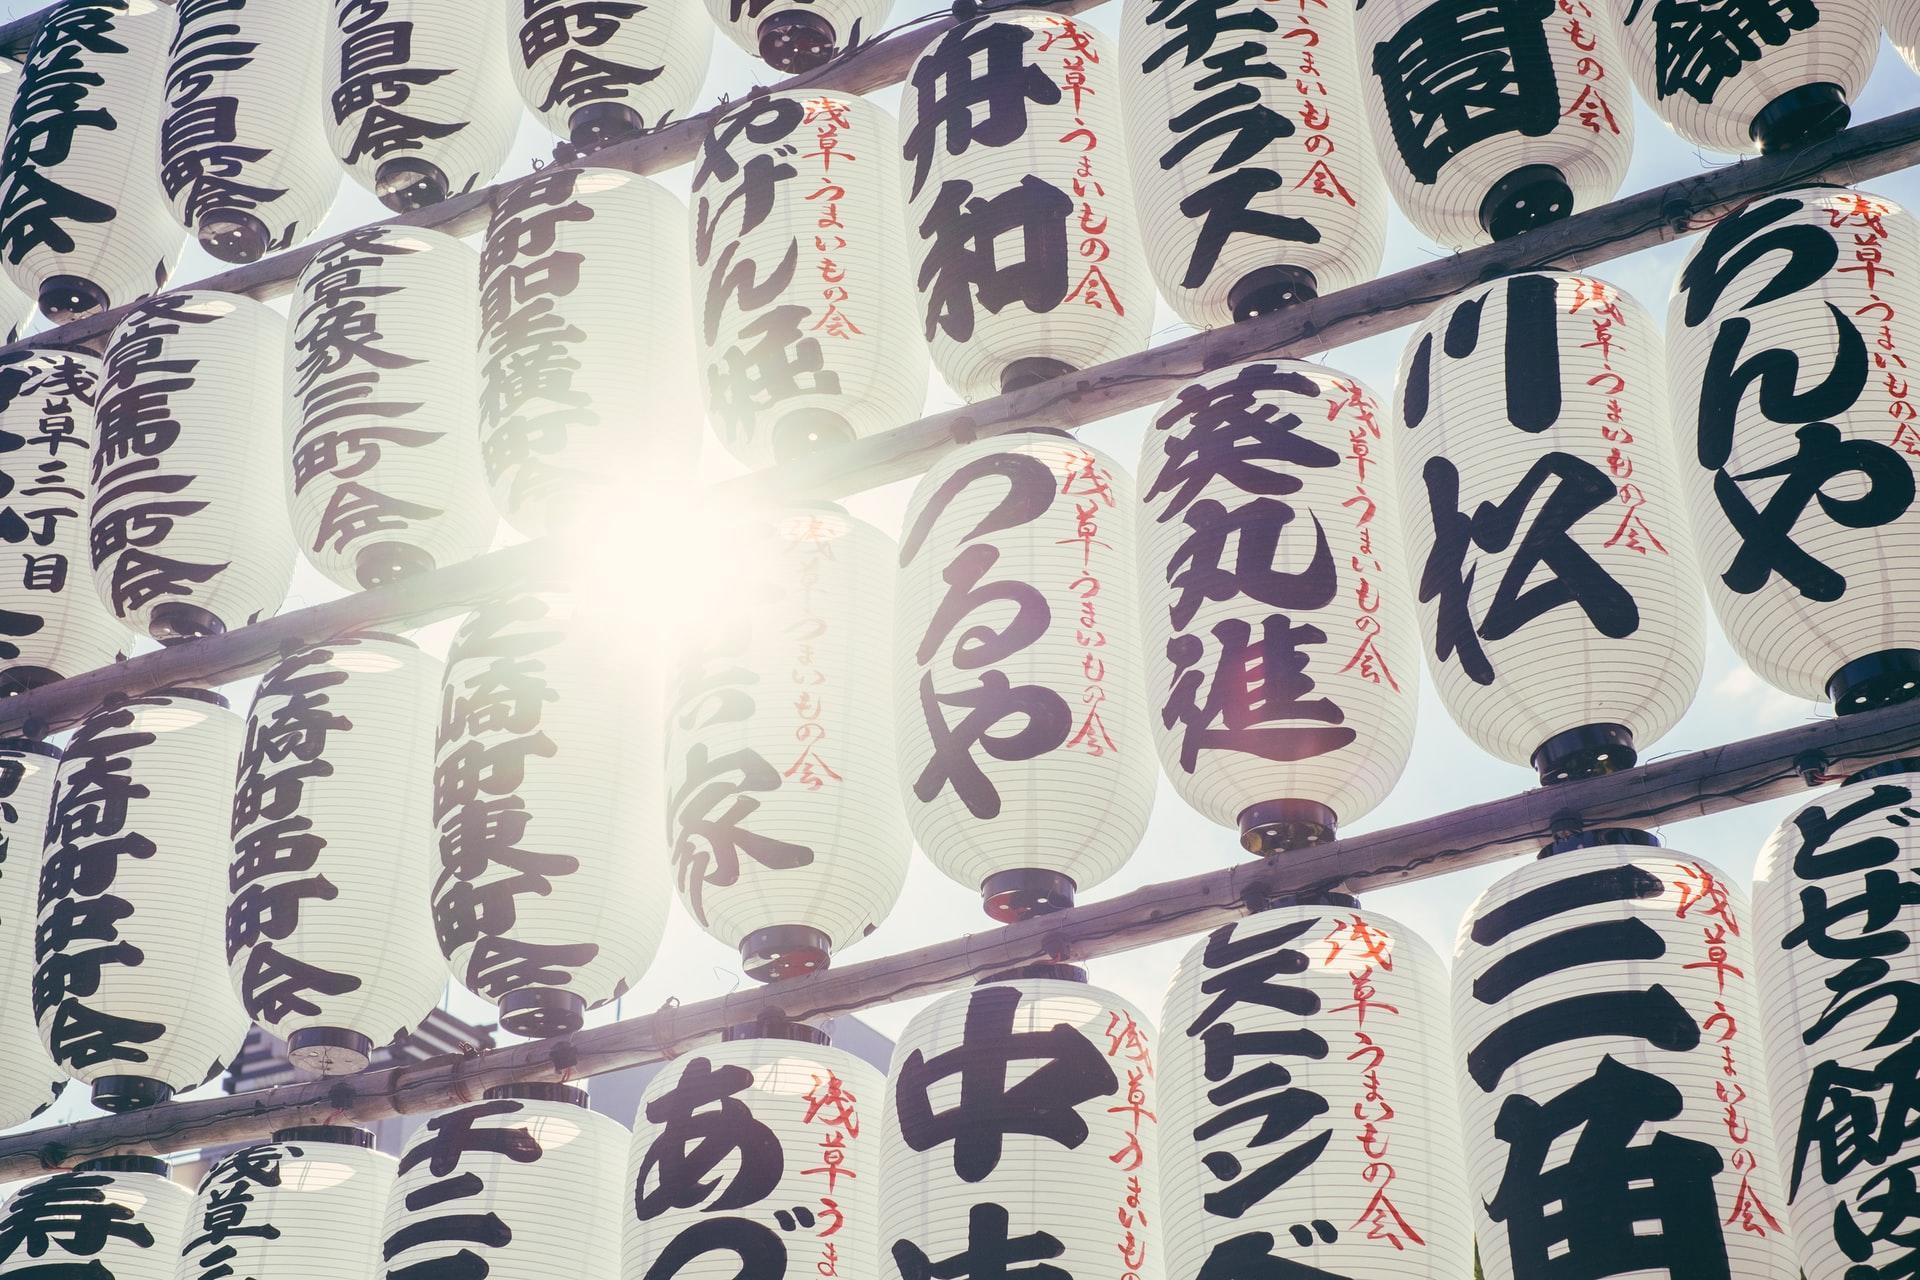 二丁目町会
目町会
町会
やげん堀
浅草うまいもの会
舟和
浅草うまいもの会
ラス
うまいもの会
園
いもの会
浅草三丁目
草馬二町会
草象三町会
町聖横町会
つるや
浅草うまいもの会
葵丸進
浅草うまいもの会
川松
浅草うまいもの会
ちんや
浅草うまいもの会
家
浅草うまいもの会
芝崎町中町会
芝崎町西町会
芝崎町東町会
浅草
あづ
浅草うま
中
浅草うまいも
レストラン
浅草うまいもの会
三角
浅草うまいもの会
どぜう飯田